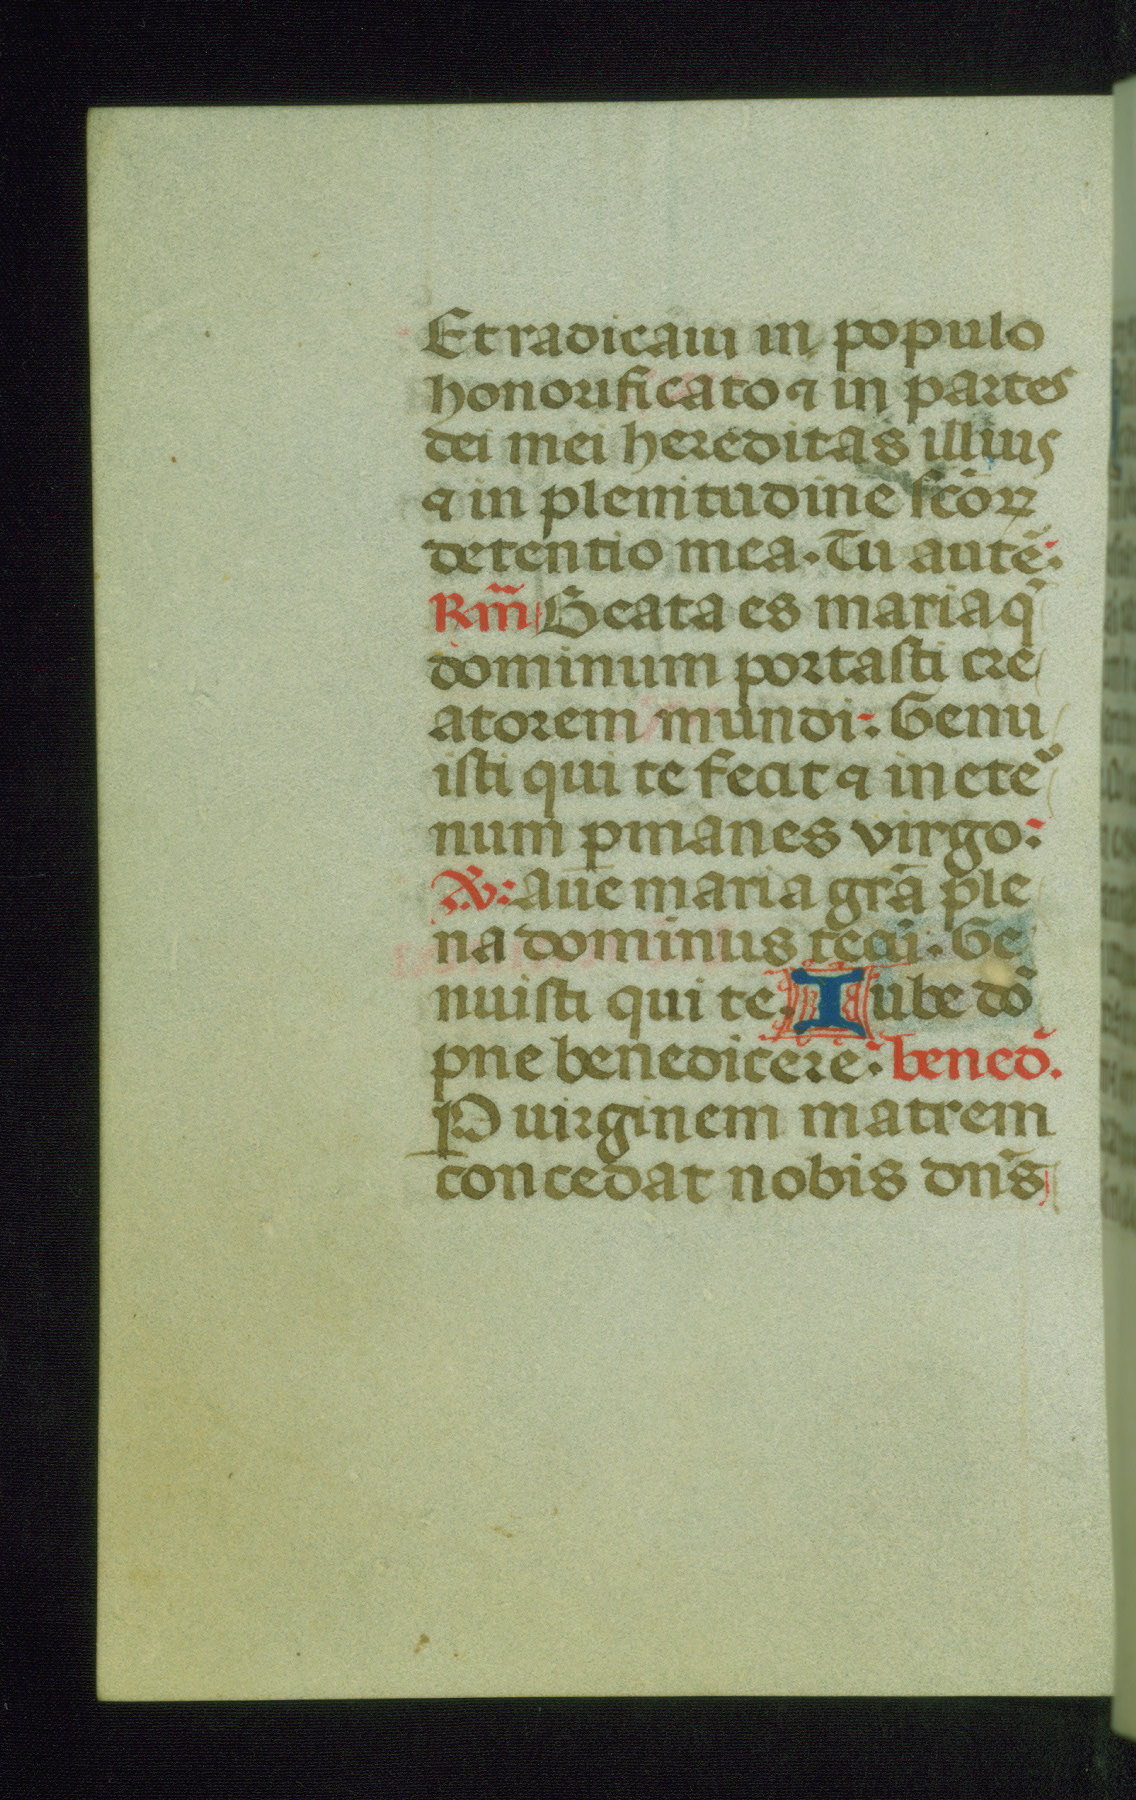 Et radicaui in populo
honorificato ⁊ in partes
dei mei hereditas illius
⁊ in plenitudine scōꝝ
detentio mea. Tu autē:
Rm̄ Beata es maria q̄
dominum portasti cre
atorem mundi: Genu
isti qui te fecit ⁊ in eter
num ꝑmanes virgo:
℣: aue maria grā ple
na dominus tecū. Ge
nuisti qui te. Iube dō
pne benedicere: bened̄.
P uirginem matrem
concedat nobis dn̄s